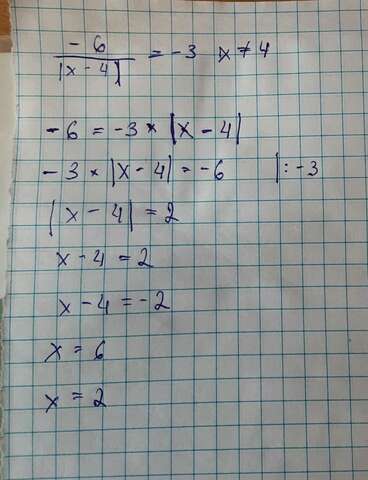 -6/|x-4| = -3 x ≠ 4
-6 = -3 × |x - 4|
-3 × |x - 4| = -6 |: -3
|x - 4| = 2
x - 4 = 2
x - 4 = -2
x = 6
x = 2